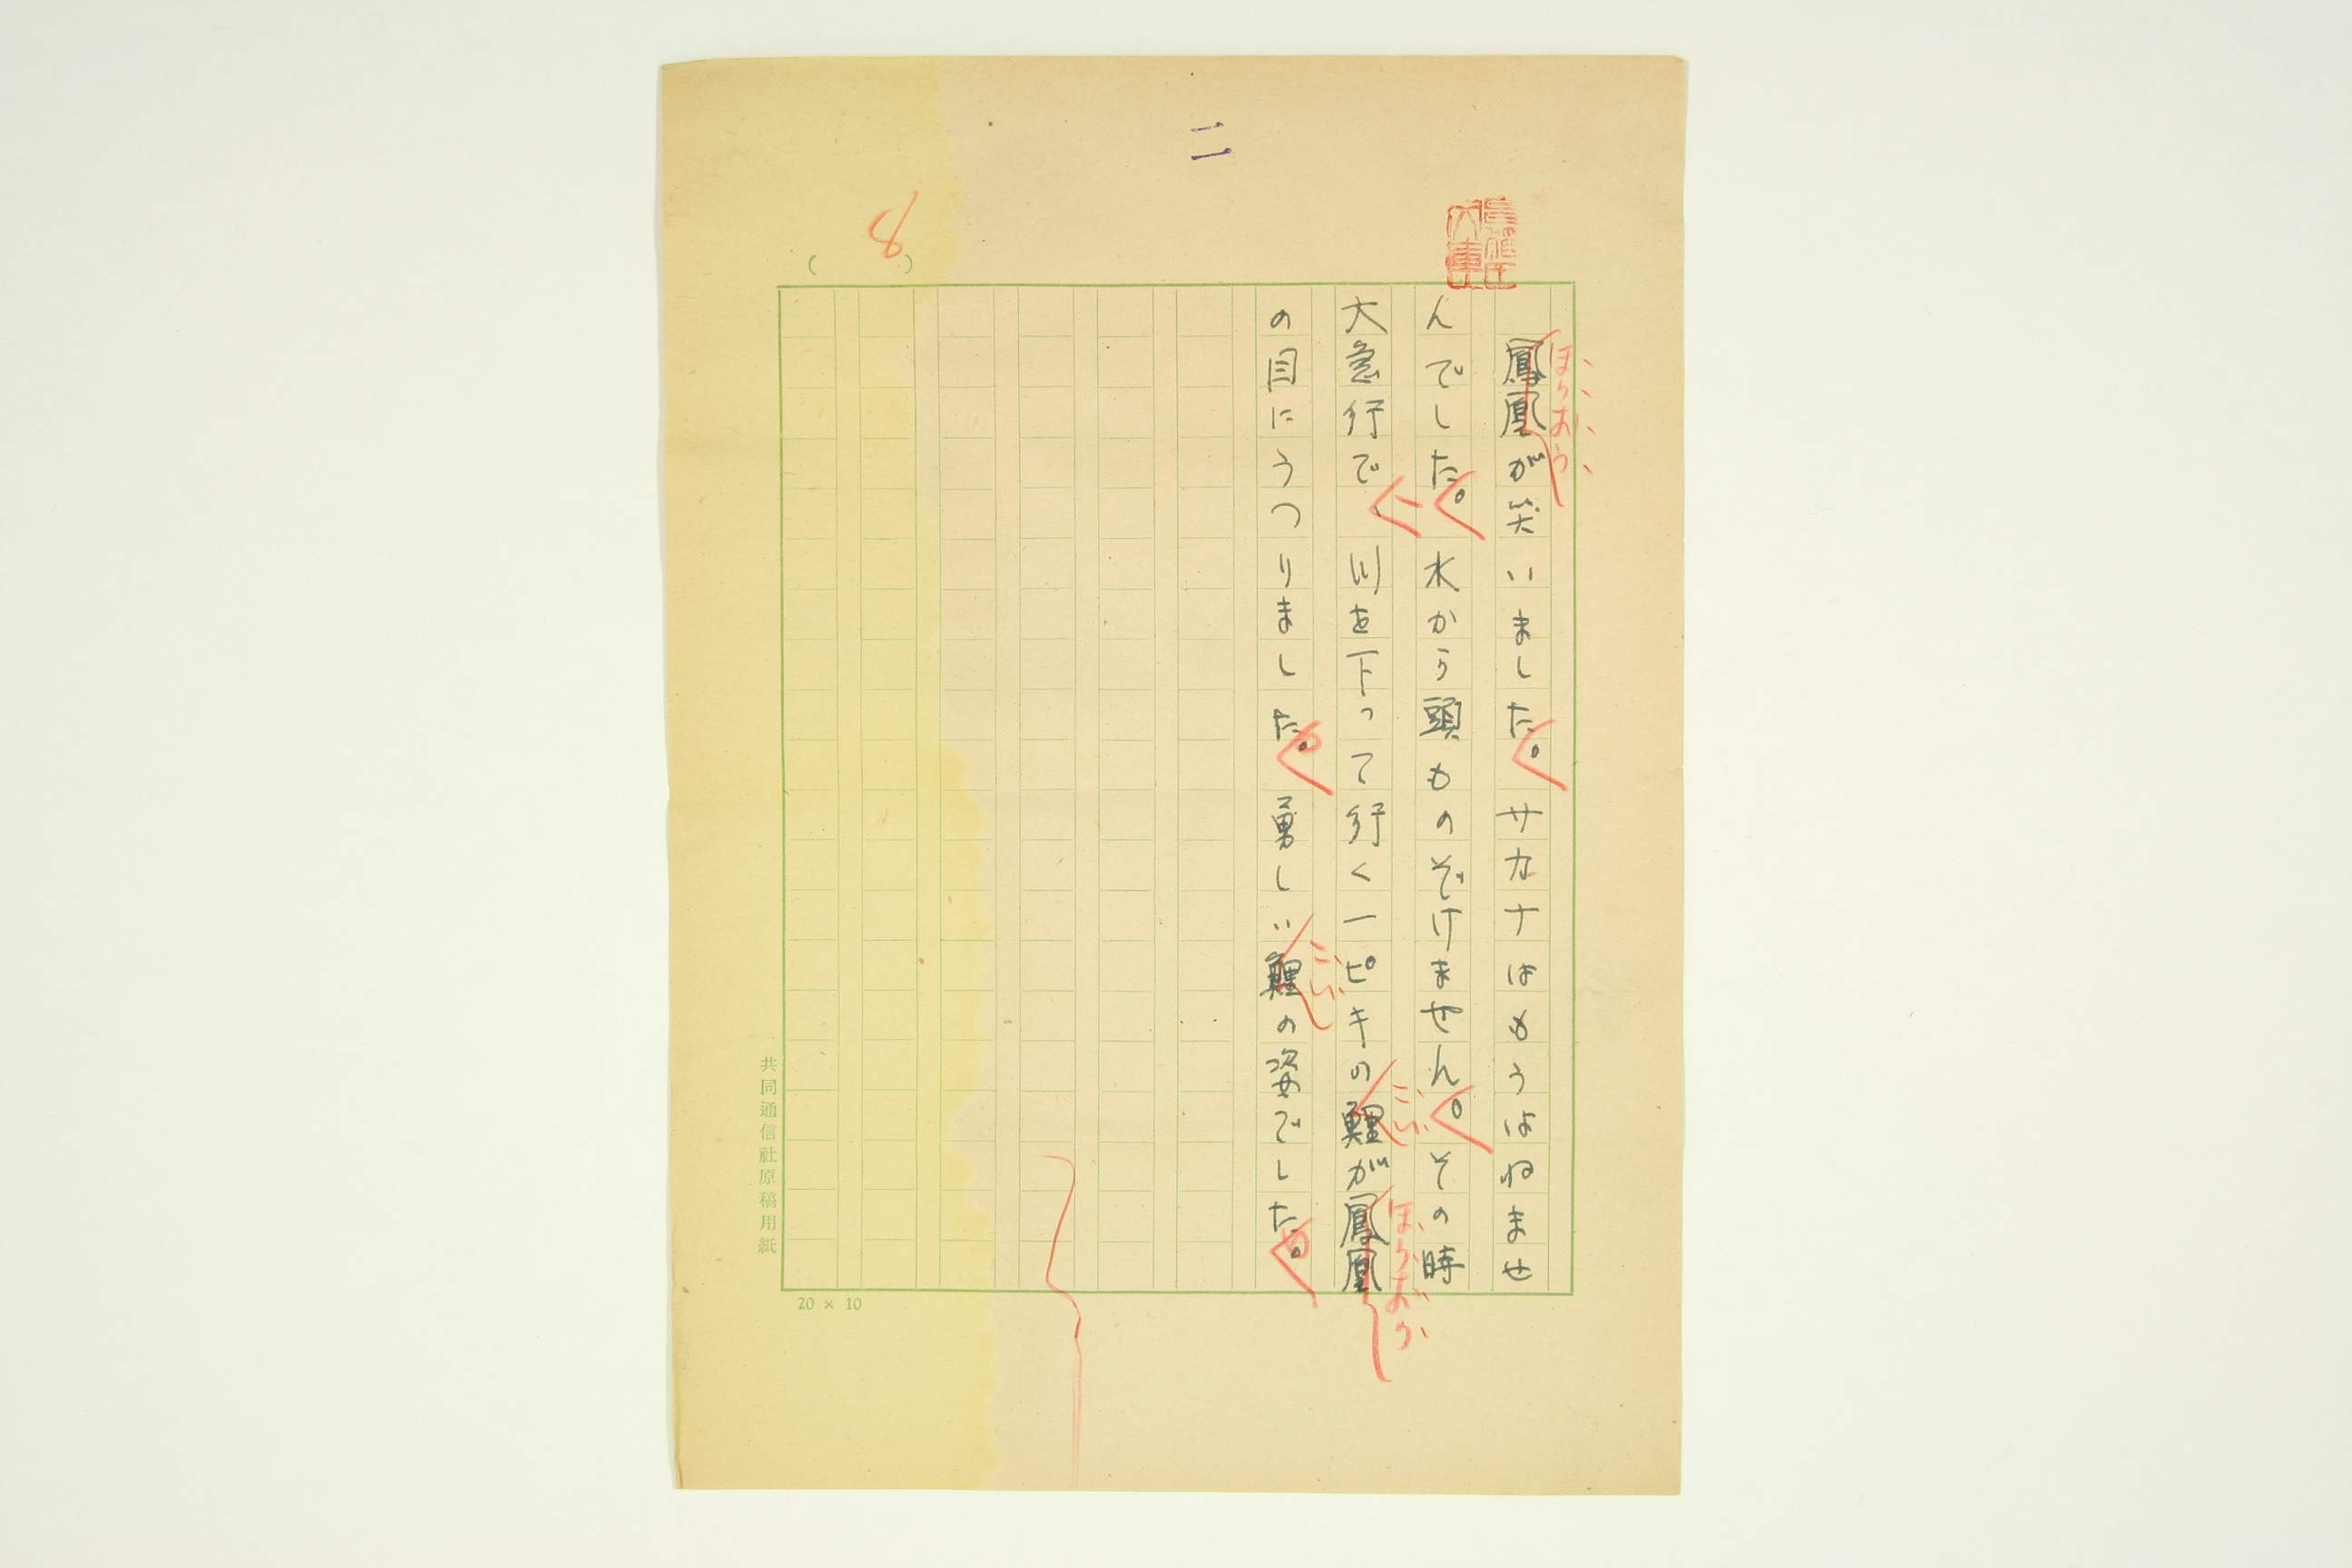 二
8
（　）
鳳凰が笑いました。サカナはもうはねませ
ほうおう
んでした。水から頭ものぞけません。その時
大急行で、川を下って行く一ピキの鯉が鳳凰
こい
ほうおう
の目にうつりました。勇しい鯉の姿でした。
こい
共同通信社原稿用紙
20 × 10